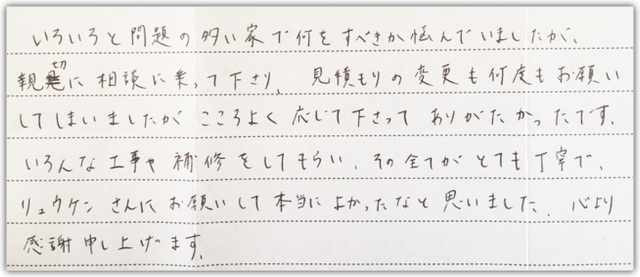 いろいろと問題の多い家で何をすべきか悩んでいましたが、
親切に相談に乗って下さり、見積もりの変更も何度もお願い
してしまいましたがこころよく応じて下さってありがたかったです。
いろんな工事や補修をしてもらい、その全てがとても丁寧で、
リュウケンさんにお願いして本当によかったなと思いました。心より
感謝申し上げます。